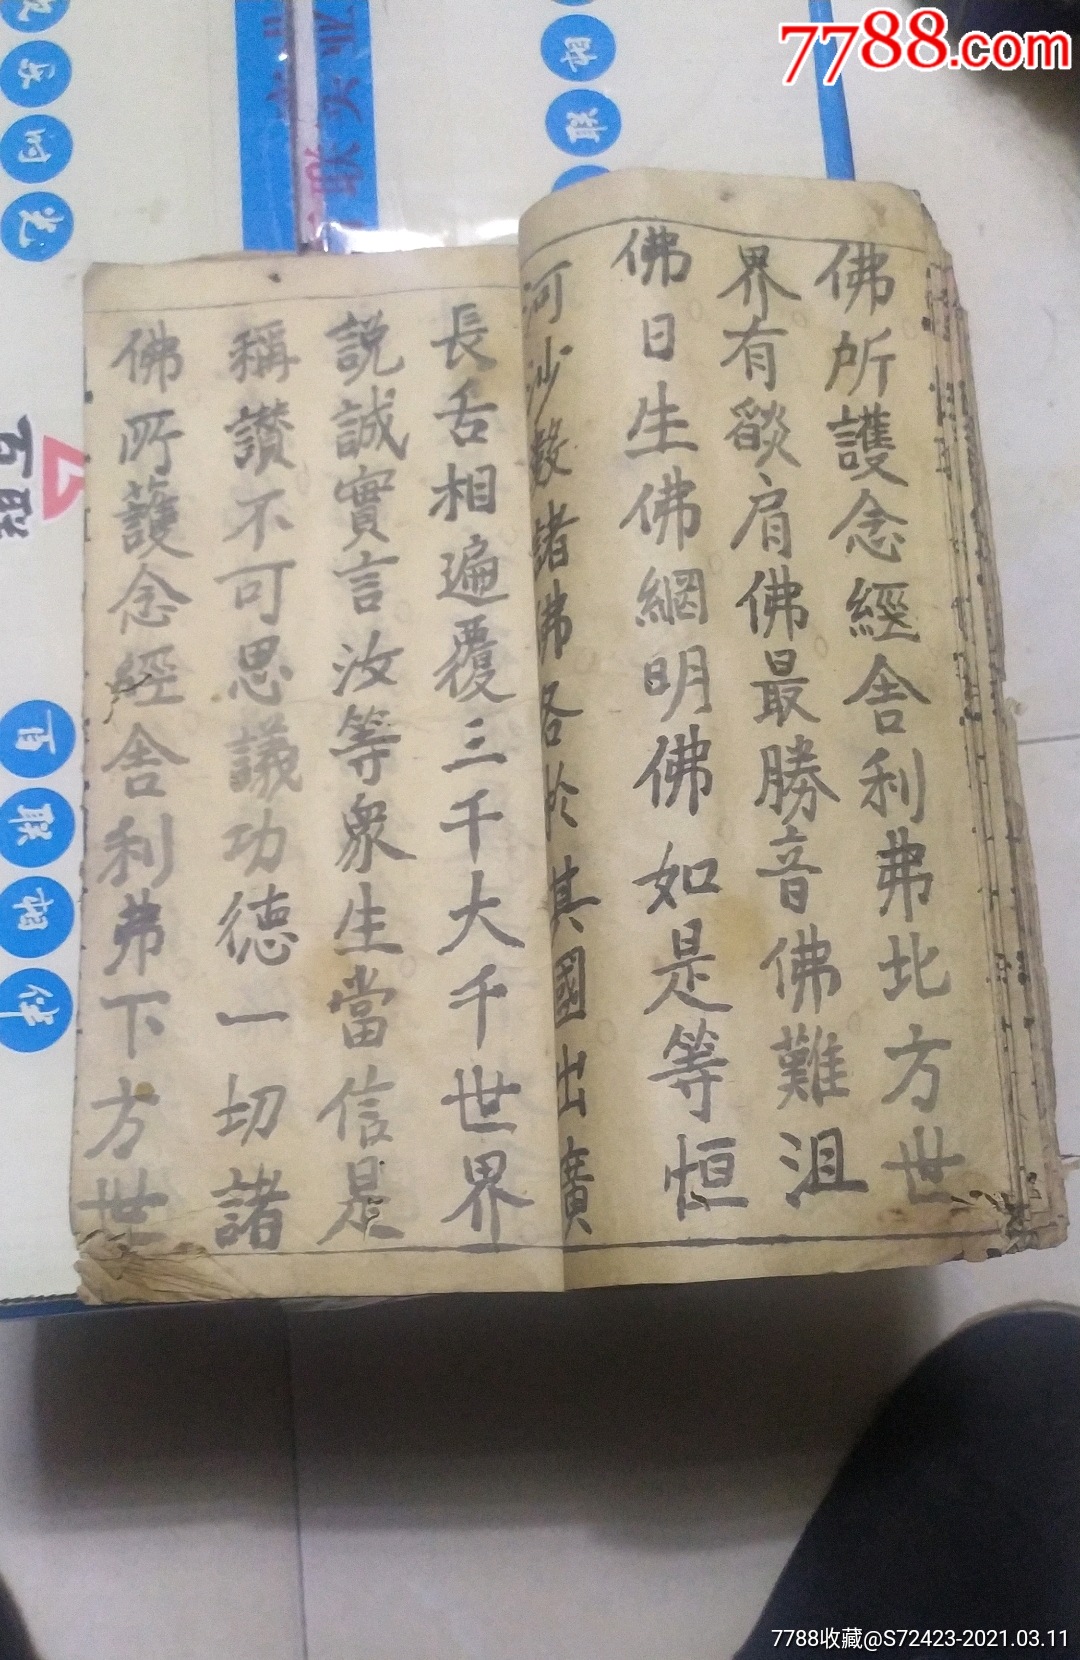 7788.com
佛所護念經舍利弗北方世
界有燄肩佛最勝音佛難沮
佛日生佛網明佛如是等恒
河沙數諸佛各於其國出廣
長舌相遍覆三千大千世界
説誠實言汝等衆生當信是
稱讃不可思議功德一切諸
佛所護念經舍利弗下方世
百联
百联相伴
7788收藏@S72423-2021.03.11